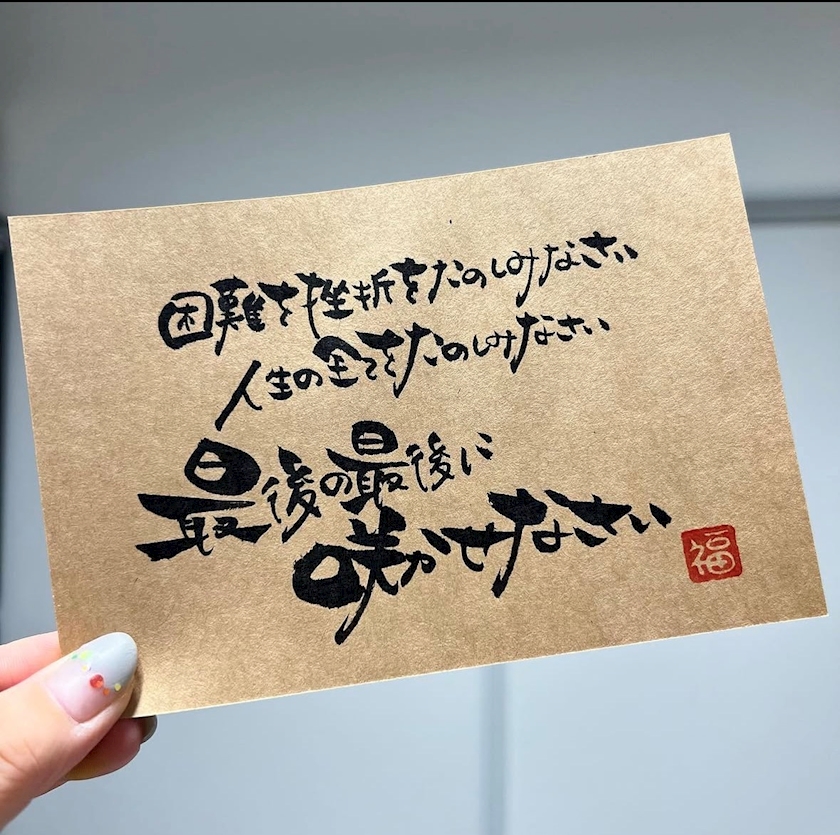 困難を挫折をたのしみなさい
人生の全てをたのしみなさい
最後の最後に
咲かせなさい
福